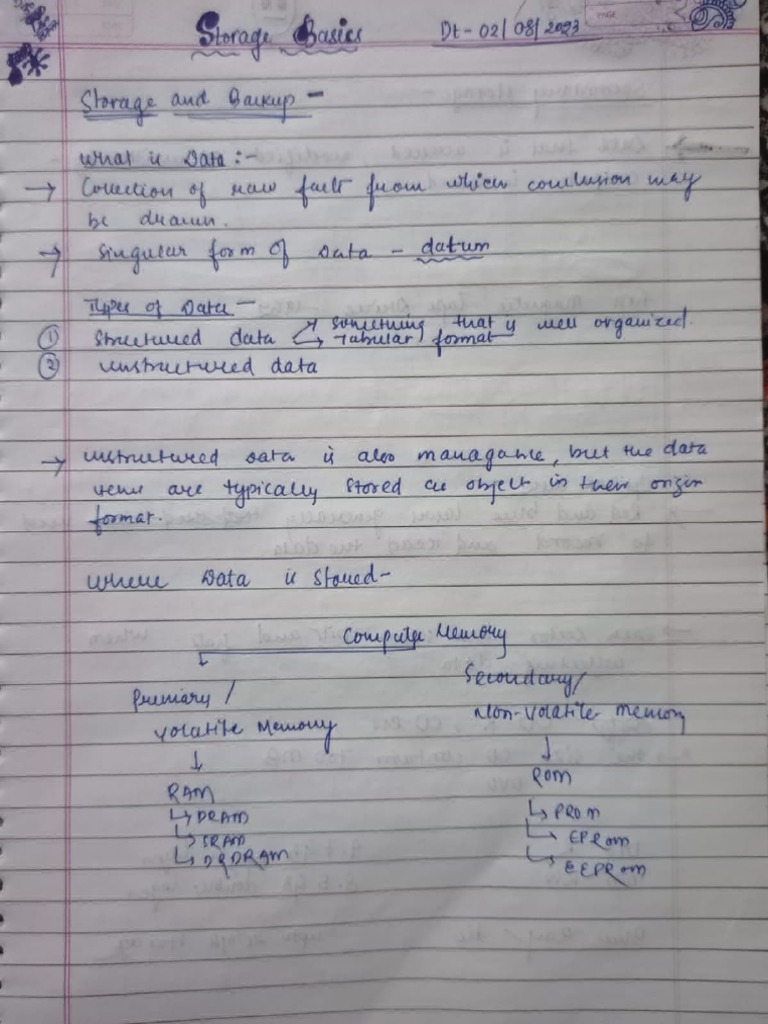 Storage Basics Dt - 02/08/2023
Storage and Backup -
What is Data :-
→ Collection of raw fact from which conclusion may
be drawn.
→ Singular form of Data - datum
Types of Data -
① Structured data → something that is well organized.
→ Tabular format
② unstructured data
→ unstructured data is also managance, but the data
items are typically stored as object in their origin
format.
Where Data is stored -
Computer Memory
Primary /
Volatile Memory
Secondary /
Non-volatile Memory
↓
RAM
↳ DRAM
↳ SRAM
↳ DRDRAM
↓
ROM
↳ PROM
↳ EPROM
↳ EEPROM